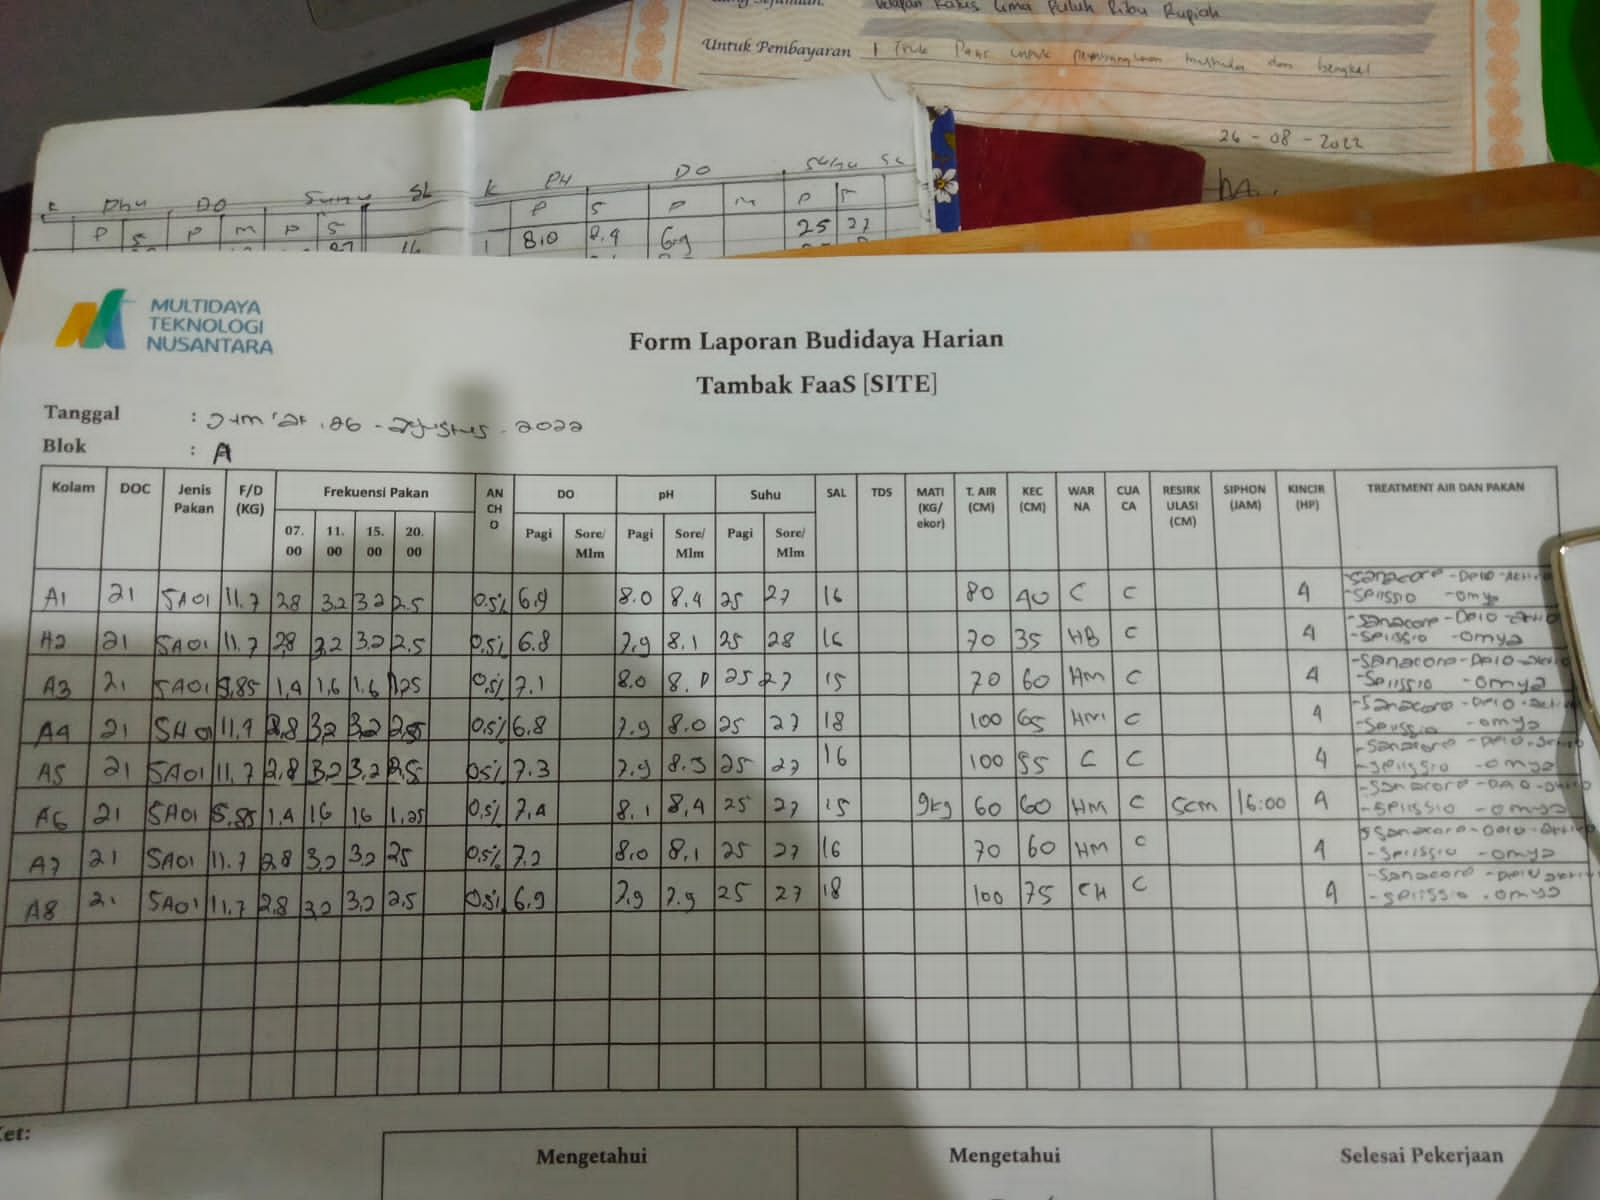 Delapan Ratus Lima Puluh Ribu Rupiah
Untuk Pembayaran 1 Truk Pasir untuk dan bengkel
26 - 08 - 2022
DO Suhu SL
P S P M P S
K PH DO Suhu SL
P S P M P S
1 8.0 8.4 6.9 25 27
MULTIDAYA
TEKNOLOGI
NUSANTARA
Form Laporan Budidaya Harian
Tambak FaaS [SITE]
Tanggal : Jum'at .26 - Agustus - 2022
Blok : A
Kolam DOC Jenis Pakan F/D (KG) Frekuensi Pakan ANCHO DO pH Suhu SAL TDS MATI (KG/ekor) T. AIR (CM) KEC (CM) WARNA CUACA RESIRKULASI (CM) SIPHON (JAM) KINCIR (HP) TREATMENT AIR DAN PAKAN
07.00 11.00 15.00 20.00 Pagi Sore/Mlm Pagi Sore/Mlm Pagi Sore/Mlm
A1 21 SA01 11.7 2.8 3.2 3.2 2.5 0.5% 6.9 8.0 8.4 25 27 16 80 40 C C 4 -Sanacore -DP10 -Aktivo
-Spiissio -omya
A2 21 SA01 11.7 2.8 3.2 3.2 2.5 0.5% 6.8 7.9 8.1 25 28 16 70 35 HB C 4 -Sanacore -DP10 -aktivo
-Spiissio -omya
A3 21 SA01 5.85 1.4 1.6 1.6 1.25 0.5% 7.1 8.0 8. 25 27 15 70 60 HM C 4 -Sanacore -DP10 -aktivo
-Spiissio -omya
A4 21 SA01 11.7 2.8 3.2 3.2 2.5 0.5% 6.8 7.9 8.0 25 27 18 100 65 HM C 4 -Sanacore -DP10 -aktivo
-Spiissio -omya
A5 21 SA01 11.7 2.8 3.2 3.2 2.5 0.5% 7.3 7.9 8.3 25 27 16 100 55 C C 4 -Sanacore -DP10 -aktivo
-Spiissio -omya
A6 21 SA01 5.85 1.4 1.6 1.6 1.25 0.5% 7.4 8.1 8.4 25 27 15 9kg 60 60 HM C 5cm 16:00 4 -Sanacore -DP10 -aktivo
-Spiissio -omya
A7 21 SA01 11.7 2.8 3.2 3.2 2.5 0.5% 7.2 8.0 8.1 25 27 16 70 60 HM C 4 -Sanacore -DP10 -aktivo
-Spiissio -omya
A8 21 SA01 11.7 2.8 3.2 3.2 2.5 0.5% 6.9 7.9 7.9 25 27 18 100 75 CH C 4 -Sanacore -DP10 aktivo
-Spiissio -omya
Ket:
Mengetahui Mengetahui Selesai Pekerjaan